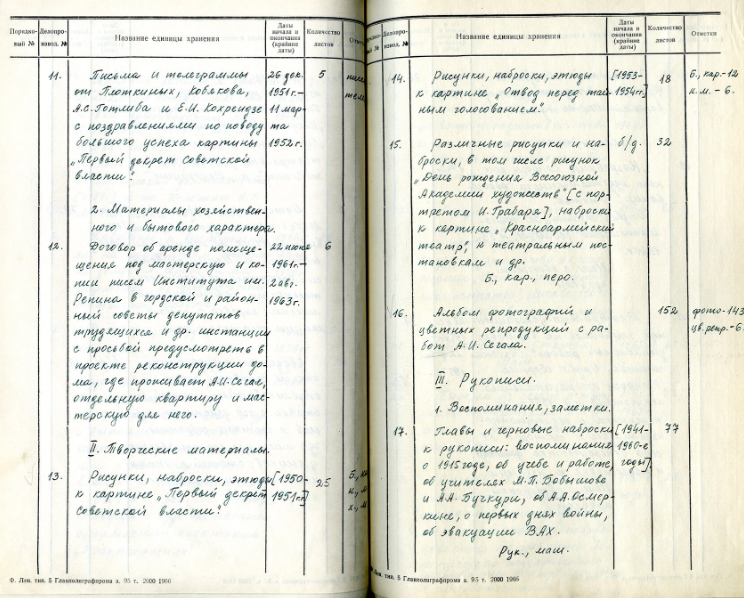 Порядко-
вый №
Делопро-
извод. №
Название единицы хранения
Даты
начала и
окончания
(крайние
даты)
Количество
листов
11.
Письма и телеграммы
от Плоткиных, Кобекова,
А.С. Готлиба и Е.И.
с поздравлениями по поводу
большого успеха картины
„Первый декрет советской
власти".
26 дек.
1951 г.–
11 мар-
та
1952 г.
5
2. Материалы хозяйствен-
ного и бытового характера.
12.
Договор об аренде помеще-
щения под мастерскую и ко-
пии писем Института им.
Репина в гордской и район-
ный советы депутатов
трудящихся и др. инстанции
с просьбой предусмотреть в
проекте реконструкции до-
ма, где проживает А.И. Сегал,
отдельную квартиру и мас-
терскую для него.
22 июня
1961 г.–
2 авг.
1963 г.
6
II. Творческие материалы.
13.
Рисунки, наброски, этюды
к картине „Первый декрет
советской власти".
[1950-
1951 гг.]
25
Ф. Лен. тип. 5 Главполиграфпрома з. 95 т. 2000 1966
Делопро-
извод. №
Название единицы хранения
Даты
начала и
окончания
(крайние
даты)
Количество
листов
Отметки
14.
Рисунки, наброски, этюды
к картине „Отвод перед тай-
ным голосованием".
[1953-
1954 гг.]
18
Б., кар.-12
к.м. – 6.
15.
Различные рисунки и на-
броски, в том числе рисунок
„День рождения Всесоюзной
Академии художеств" [с пор-
третом И. Грабаря], наброски
к картине „Красноармейский
театр", к театральным пос-
тановкам и др.
Б., кар., перо.
б/д.
32
16.
Альбом фотографий и
цветных репродукций с ра-
бот А.И. Сегала.
152
фото-143
цв. репр.-6.
III. Рукописи.
1. Воспоминания, заметки.
17.
Главы и черновые наброски
к рукописи: воспоминания
о 1915 годе, об учебе и работе,
об учителях М.П. Бобышово
и А.А. Бучкури, об А.А. Осмер-
кине, о первых днях войны,
об эвакуации ВАХ.
Рук., маш.
[1941-
1960-е
годы].
77
Лен. тип. 5 Главполиграфпрома з. 95 т. 2000 1966